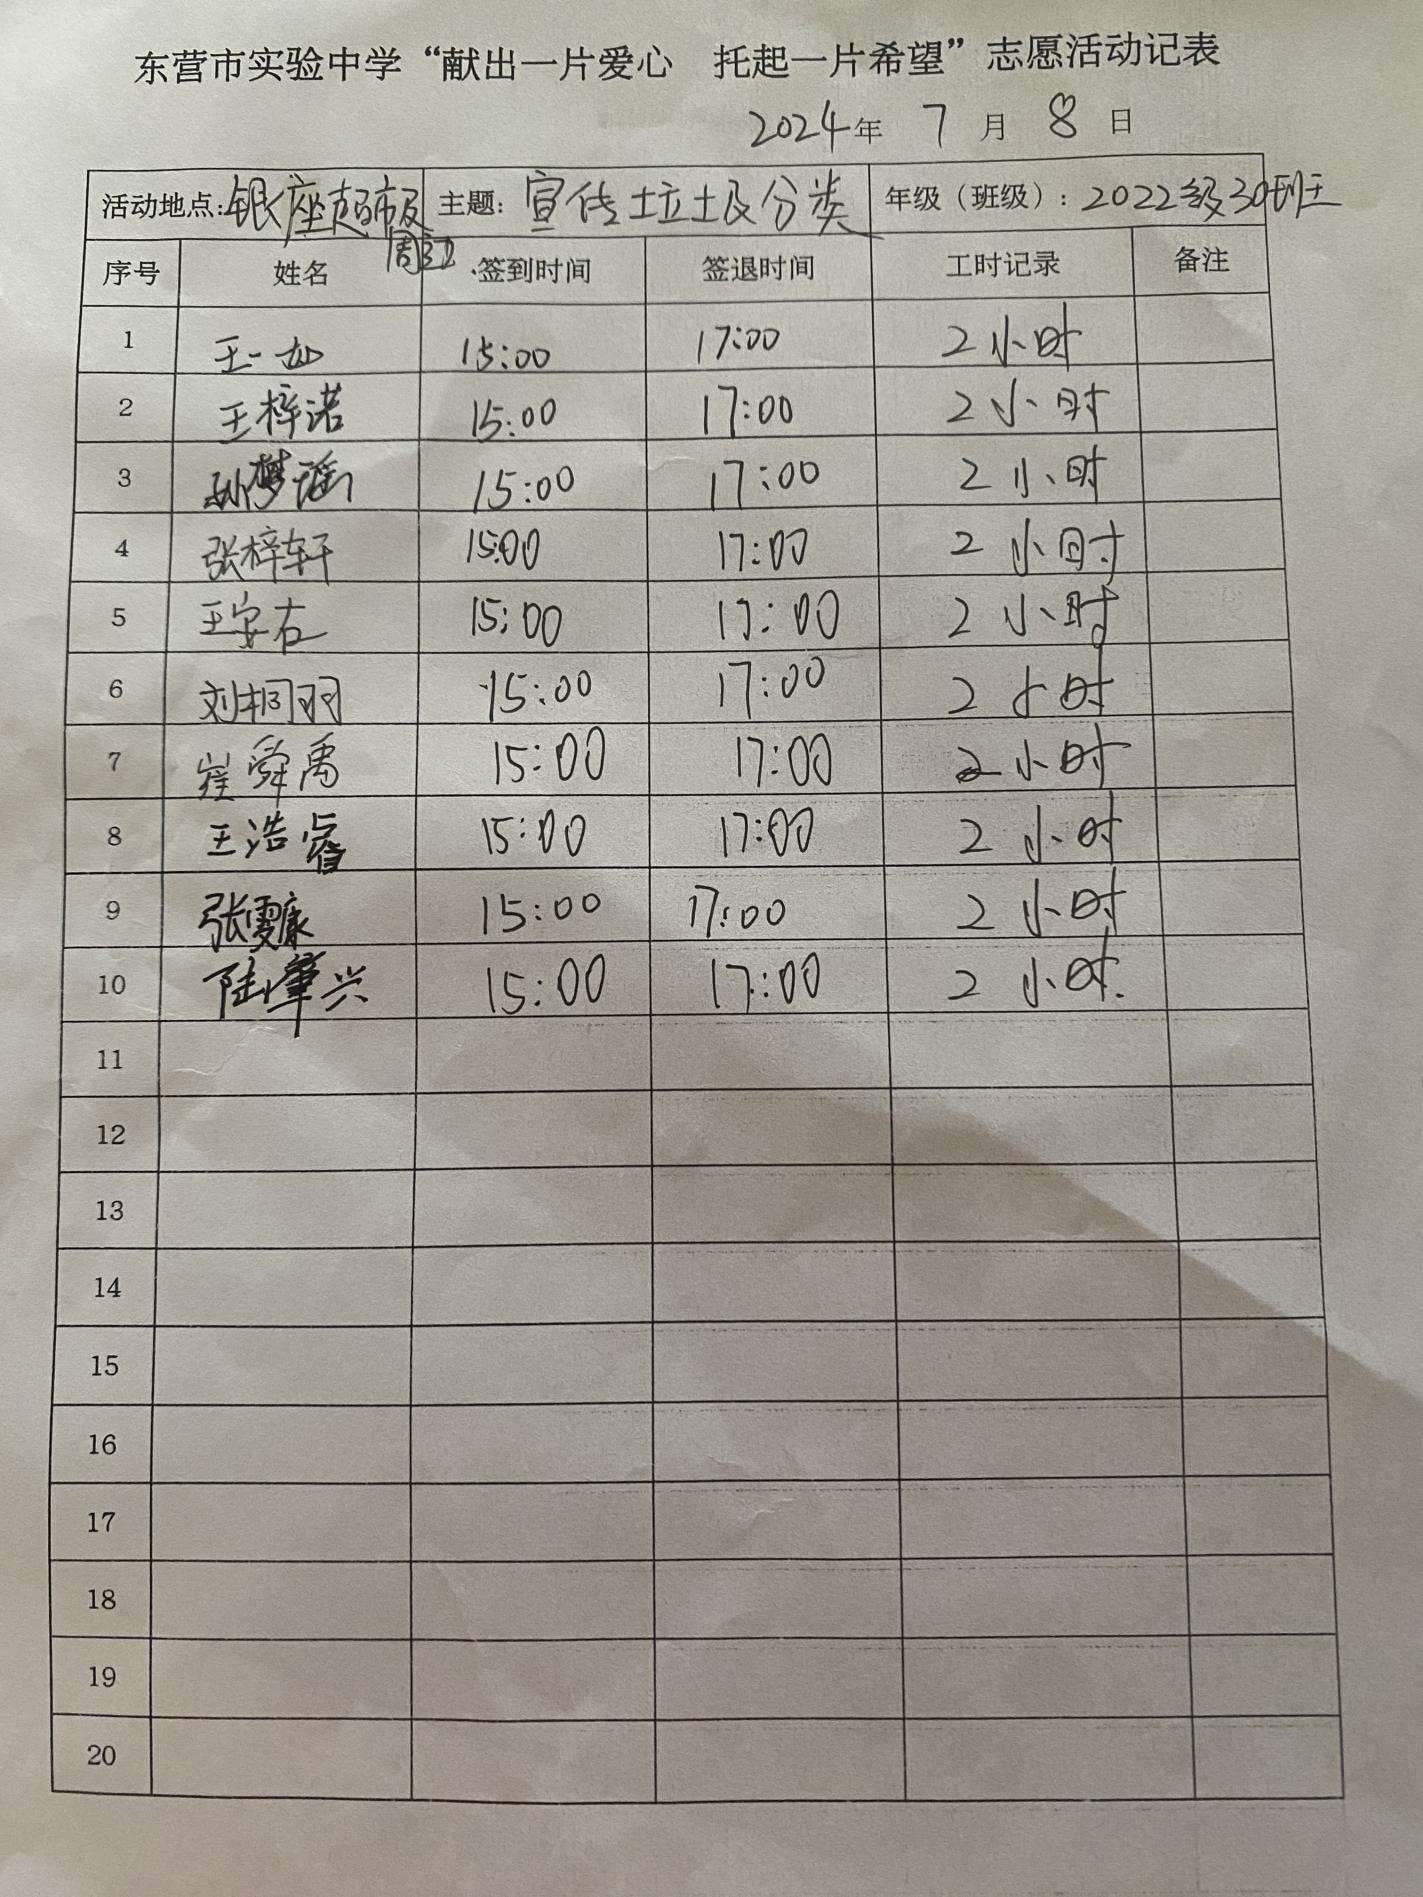 东营市实验中学“献出一片爱心 托起一片希望”志愿活动记表
2024年 7 月 8 日
活动地点:银座超市 主题: 宣传垃圾分类 年级（班级）: 2022级30班
周边
序号 姓名 签到时间 签退时间 工时记录 备注
1 王一 15:00 17:00 2小时
2 王梓诺 15:00 17:00 2小时
3 孙梦瑶 15:00 17:00 2小时
4 张梓轩 15:00 17:00 2小时
5 王安右 15:00 17:00 2小时
6 刘桐羽 15:00 17:00 2小时
7 崔舜禹 15:00 17:00 2小时
8 王浩睿 15:00 17:00 2小时
9 张雯康 15:00 17:00 2小时
10 陆肇兴 15:00 17:00 2小时.
11
12
13
14
15
16
17
18
19
20